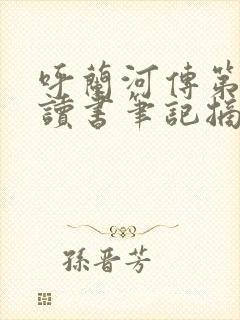 呼蘭河傳第
讀書筆記摘
孫晋芳